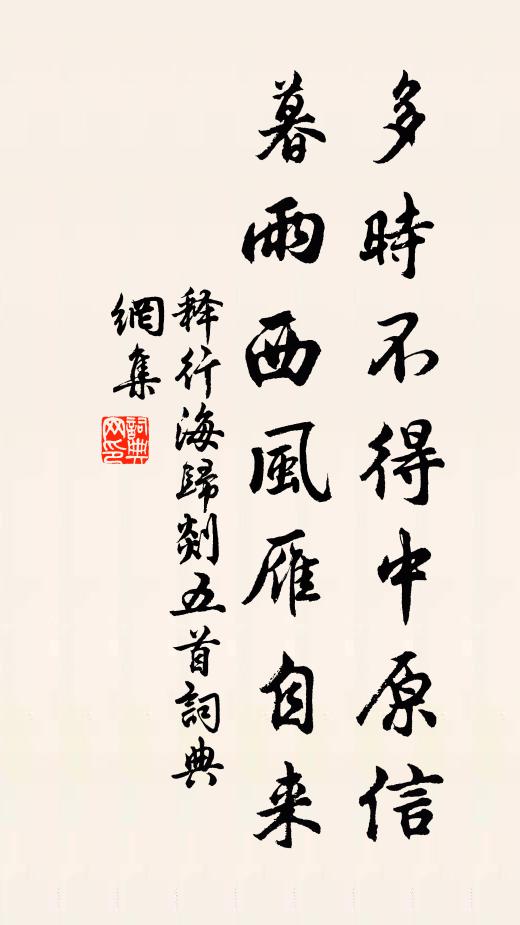 多時不得中原信
暮雨西風雁自来
释行海歸剡五首詞典
網集
詞典
网印